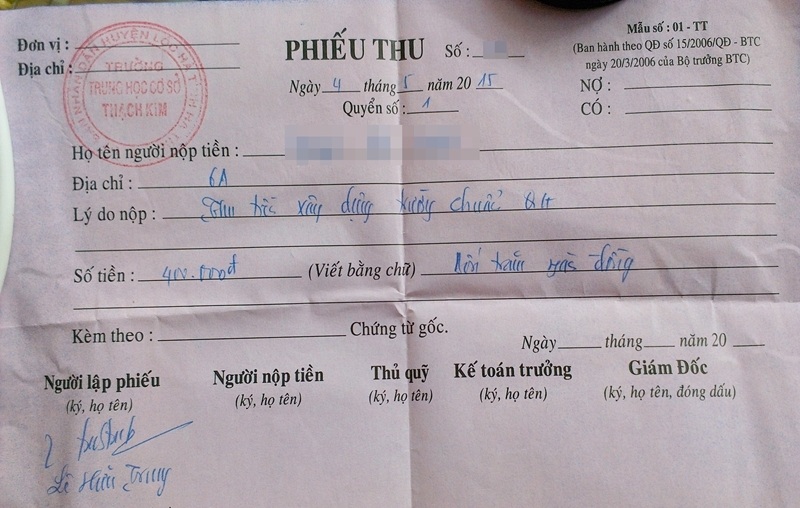 Đơn vị :
Địa chỉ :
ỦY BAN NHÂN DÂN HUYỆN LỘC HÀ T. HÀ TĨNH
TRƯỜNG
TRUNG HỌC CƠ SỞ
THẠCH KIM
PHIẾU THU
Số :
Ngày 4 tháng 5 năm 20 15
Quyển số : 1
Mẫu số : 01 - TT
(Ban hành theo QĐ số 15/2006/QĐ - BTC
ngày 20/3/2006 của Bộ trưởng BTC)
NỢ :
CÓ :
Họ tên người nộp tiền :
Địa chỉ : 6A
Lý do nộp : Thu tiền xây dựng trường chuẩn QG
Số tiền : 400.000đ (Viết bằng chữ) Bốn trăm ngàn đồng
Kèm theo : Chứng từ gốc.
Ngày tháng năm 20
Người lập phiếu
(ký, họ tên)
Người nộp tiền
(ký, họ tên)
Thủ quỹ
(ký, họ tên)
Kế toán trưởng
(ký, họ tên)
Giám Đốc
(ký, họ tên, đóng dấu)
Lê Hữu Trung